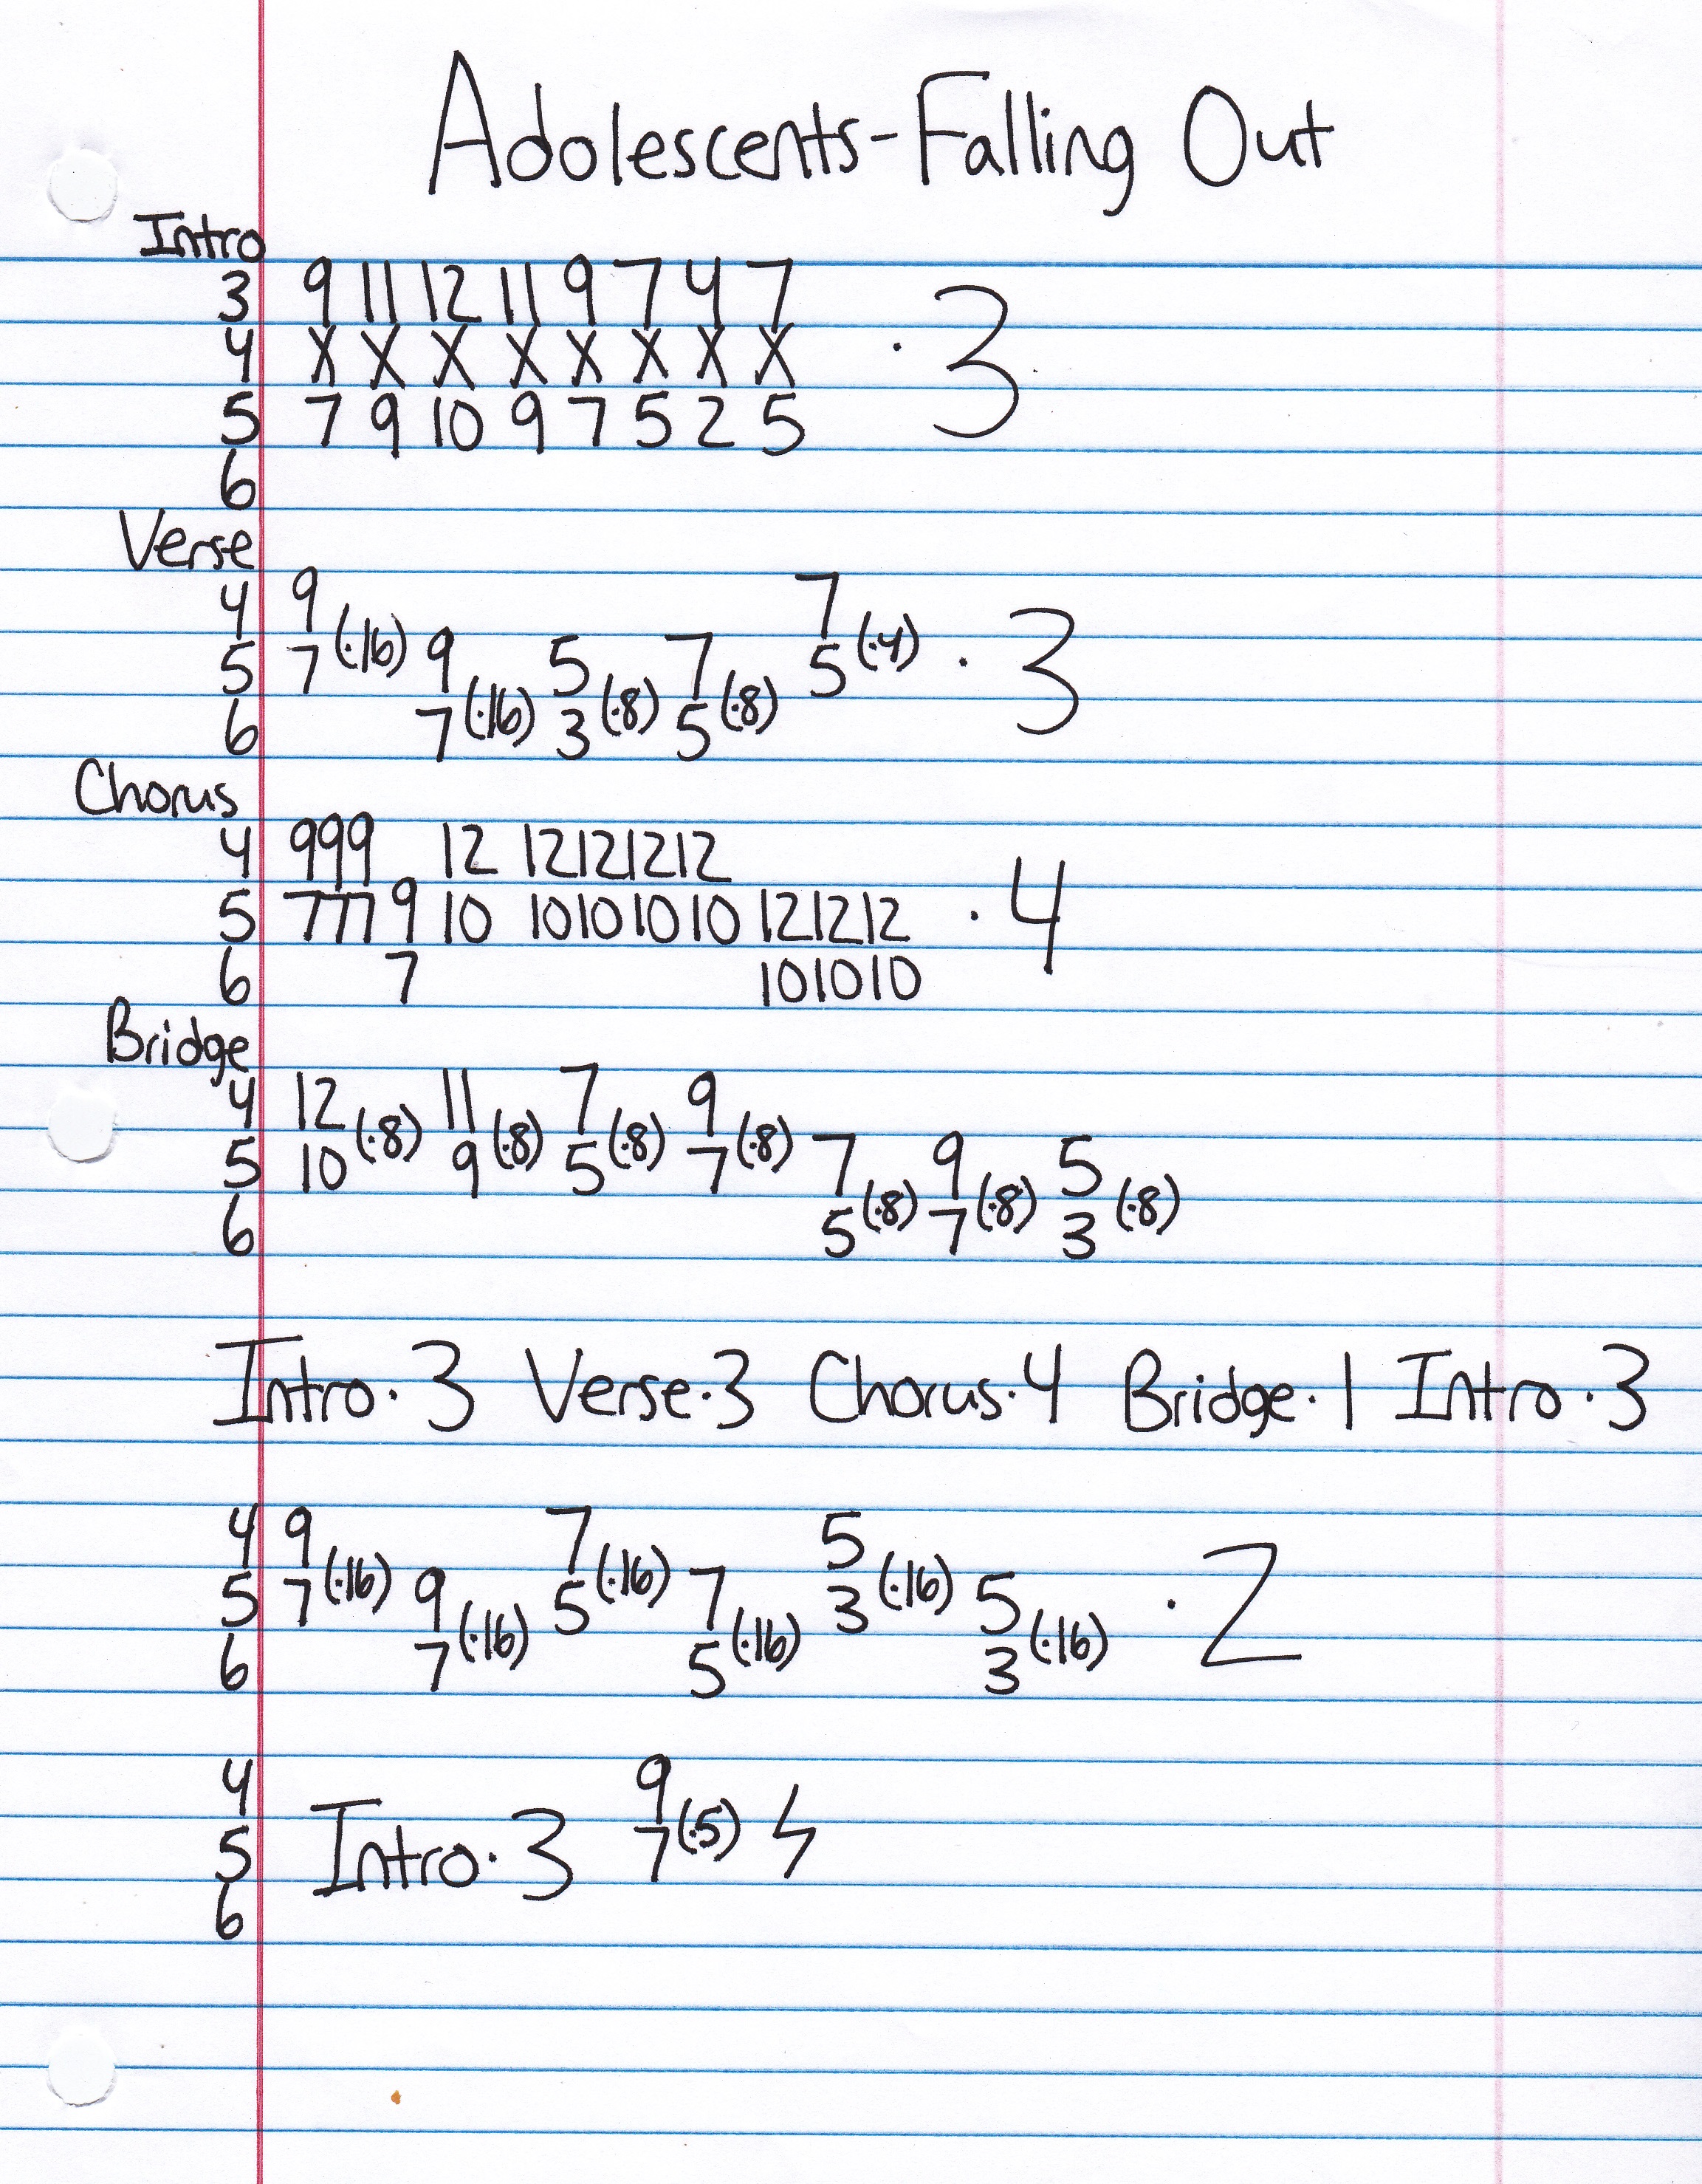 Adolescents-Falling Out
Intro
3 9 11 12 11 9 7 4 7
4 X X X X X X X X · 3
5 7 9 10 9 7 5 2 5
6
Verse
4 9 7
5 7 (·16) 9 5 7 5 (·4) · 3
6 7 (·16) 3 (·8) 5 (·8)
Chorus
4 999 12 12121212
5 777 9 10 10101010 121212 · 4
6 7 101010
Bridge
4 12 11 7 9
5 10 (·8) 9 (·8) 5 (·8) 7 (·8) 7 9 5
6 5 (·8) 7 (·8) 3 (·8)
Intro·3 Verse·3 Chorus·4 Bridge·1 Intro·3
4 9 7 5
5 7 (·16) 9 5 (·16) 7 3 (·16) 5 · 2
6 7 (·16) 5 (·16) 3 (·16)
4 9
5 Intro·3 7 (·5)
6